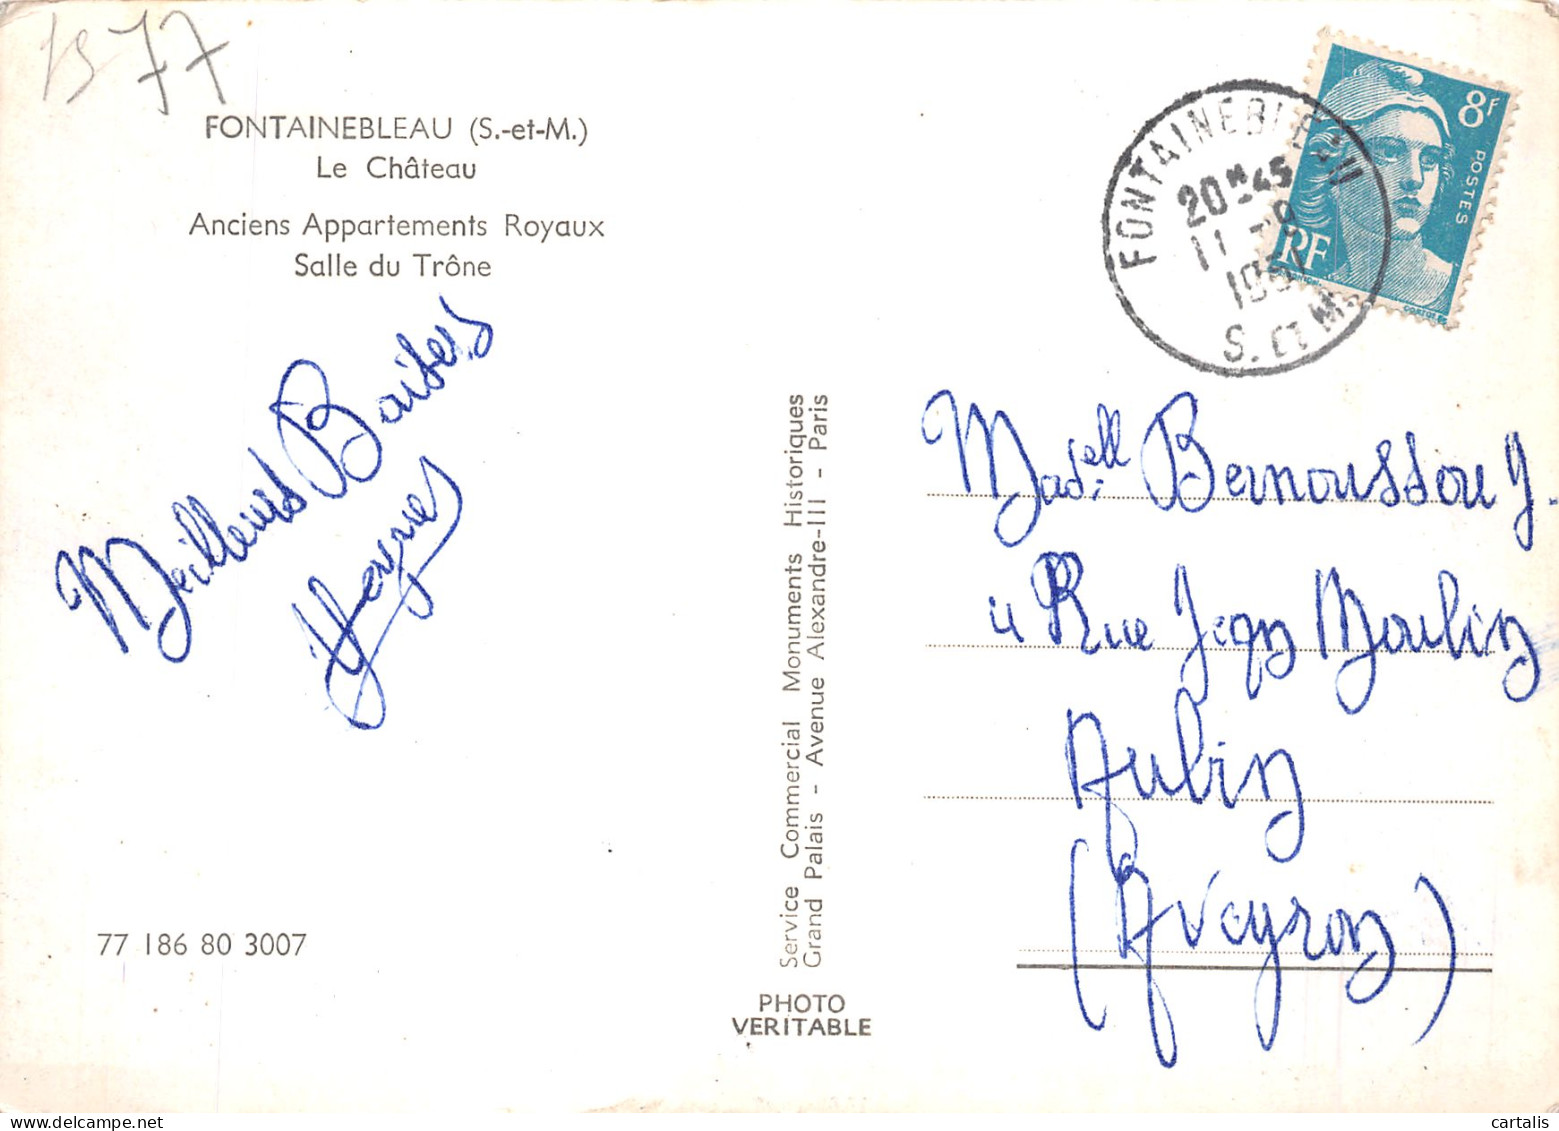 77
FONTAINEBLEAU (S.-et-M.)
Le Château
Anciens Appartements Royaux
Salle du Trône
Meilleurs Baisers
77 186 80 3007
Service Commercial Monuments Historiques
Grand Palais - Avenue Alexandre-III - Paris
PHOTO
VERITABLE
FONTAINEBLEAU
20H45
11
S. ET M.
8F
POSTES
RF
Madelle Bernoussou J.
4 Rue Jean Moulin
Aubin
(Aveyron)
cartalis